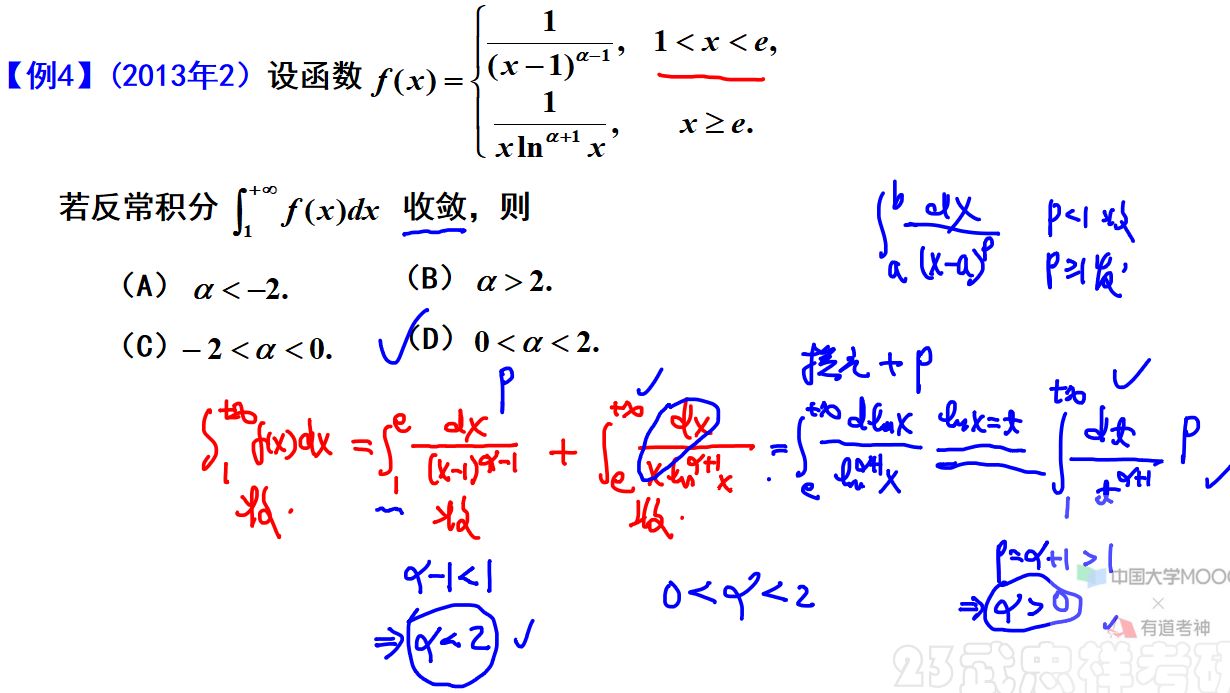 【例4】(2013年2) 设函数 f(x) = { 1/(x−1)^{α−1}, 1<x<e,
1/(x ln^{α+1} x), x≥e.
若反常积分 ∫_1^{+∞} f(x)dx 收敛,则
(A) α<−2. (B) α>2.
(C) −2<α<0. (D) 0<α<2.
∫_a^b dx/(x-a)^p p<1 收
p≥1 发
换元 + P
P
∫_1^{+∞} f(x)dx = ∫_1^e dx/(x-1)^{α-1} + ∫_e^{+∞} dx/(x ln^{α+1} x) = ∫_e^{+∞} d ln x/ln^{α+1} x  ln x = t  ∫_1^{+∞} dt/t^{α+1} P
收 收 收
α-1<1
⇒ α<2
0<α<2
P=α+1>1
⇒ α>0
中国大学MOOC
×
有道考神
23武忠祥考研